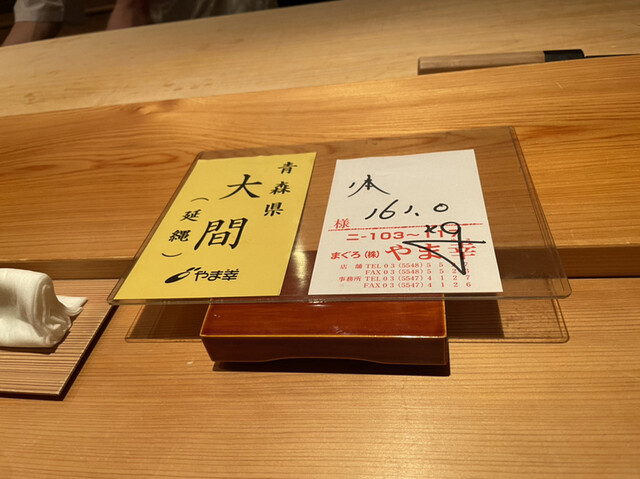 青森県
大間
(延縄)
やま幸
161.0
kg
様
二-103〜11
まぐろ(株)やま幸
店舗 TEL 03(5548)5 5 2
FAX 03(5548)5 5 2
事務所 TEL 03(5547)4 1 2 7
FAX 03(5547)4 1 2 6